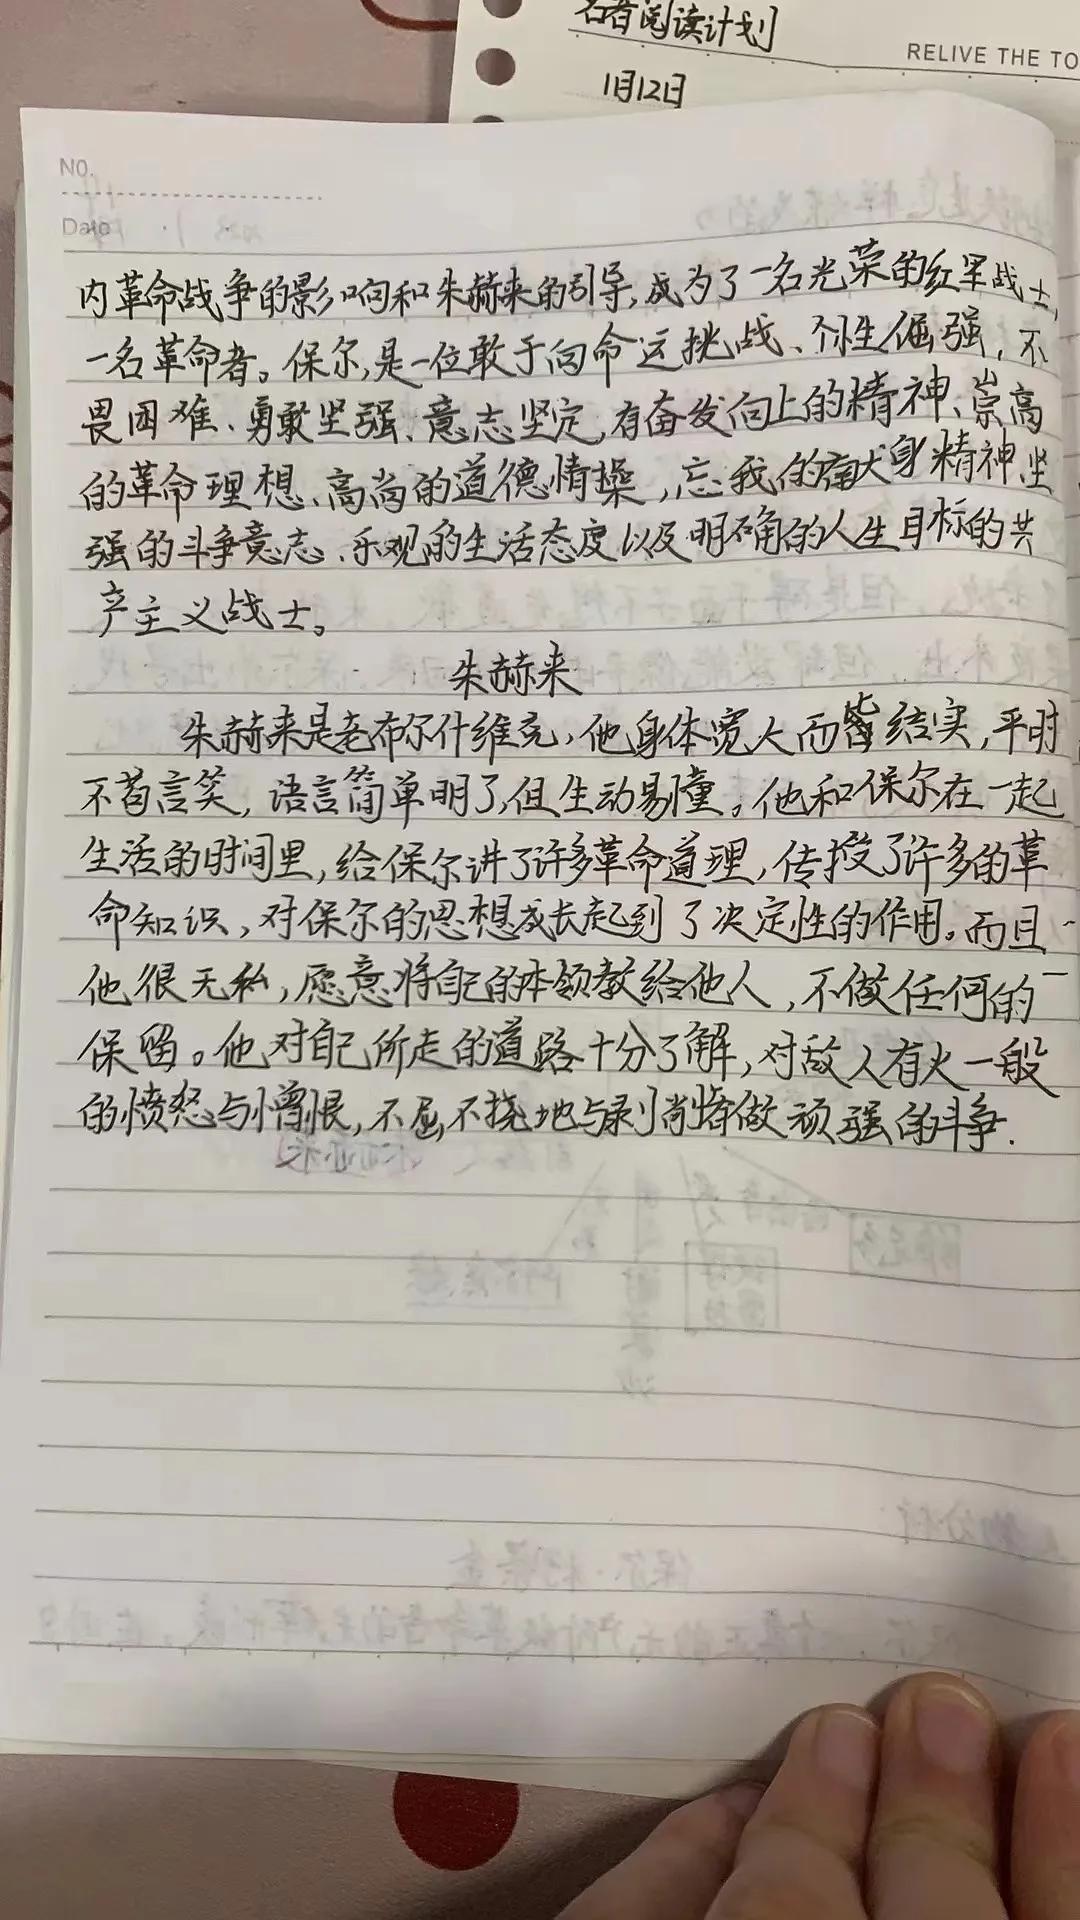 名著阅读计划
RELIVE THE TO
1月12日
NO.
Date
内革命战争的影响和朱赫来的引导,成为了一名光荣的红军战士,
一名革命者。保尔,是一位敢于向命运挑战、个性倔强,不
畏困难、勇敢坚强、意志坚定,有奋发向上的精神、崇高
的革命理想、高尚的道德情操,忘我的献身精神、坚
强的斗争意志、乐观的生活态度以及明确的人生目标的共
产主义战士。
朱赫来
朱赫来是老布尔什维克,他身体宽大而结实,平时
不苟言笑,语言简单明了,但生动易懂。他和保尔在一起
生活的时间里,给保尔讲了许多革命道理,传授了许多的革
命知识,对保尔的思想成长起到了决定性的作用。而且
他很无私,愿意将自己的本领教给他人,不做任何的
保留。他对自己所走的道路十分了解,对敌人有火一般
的愤怒与憎恨,不屈不挠地与剥削者做顽强的斗争.